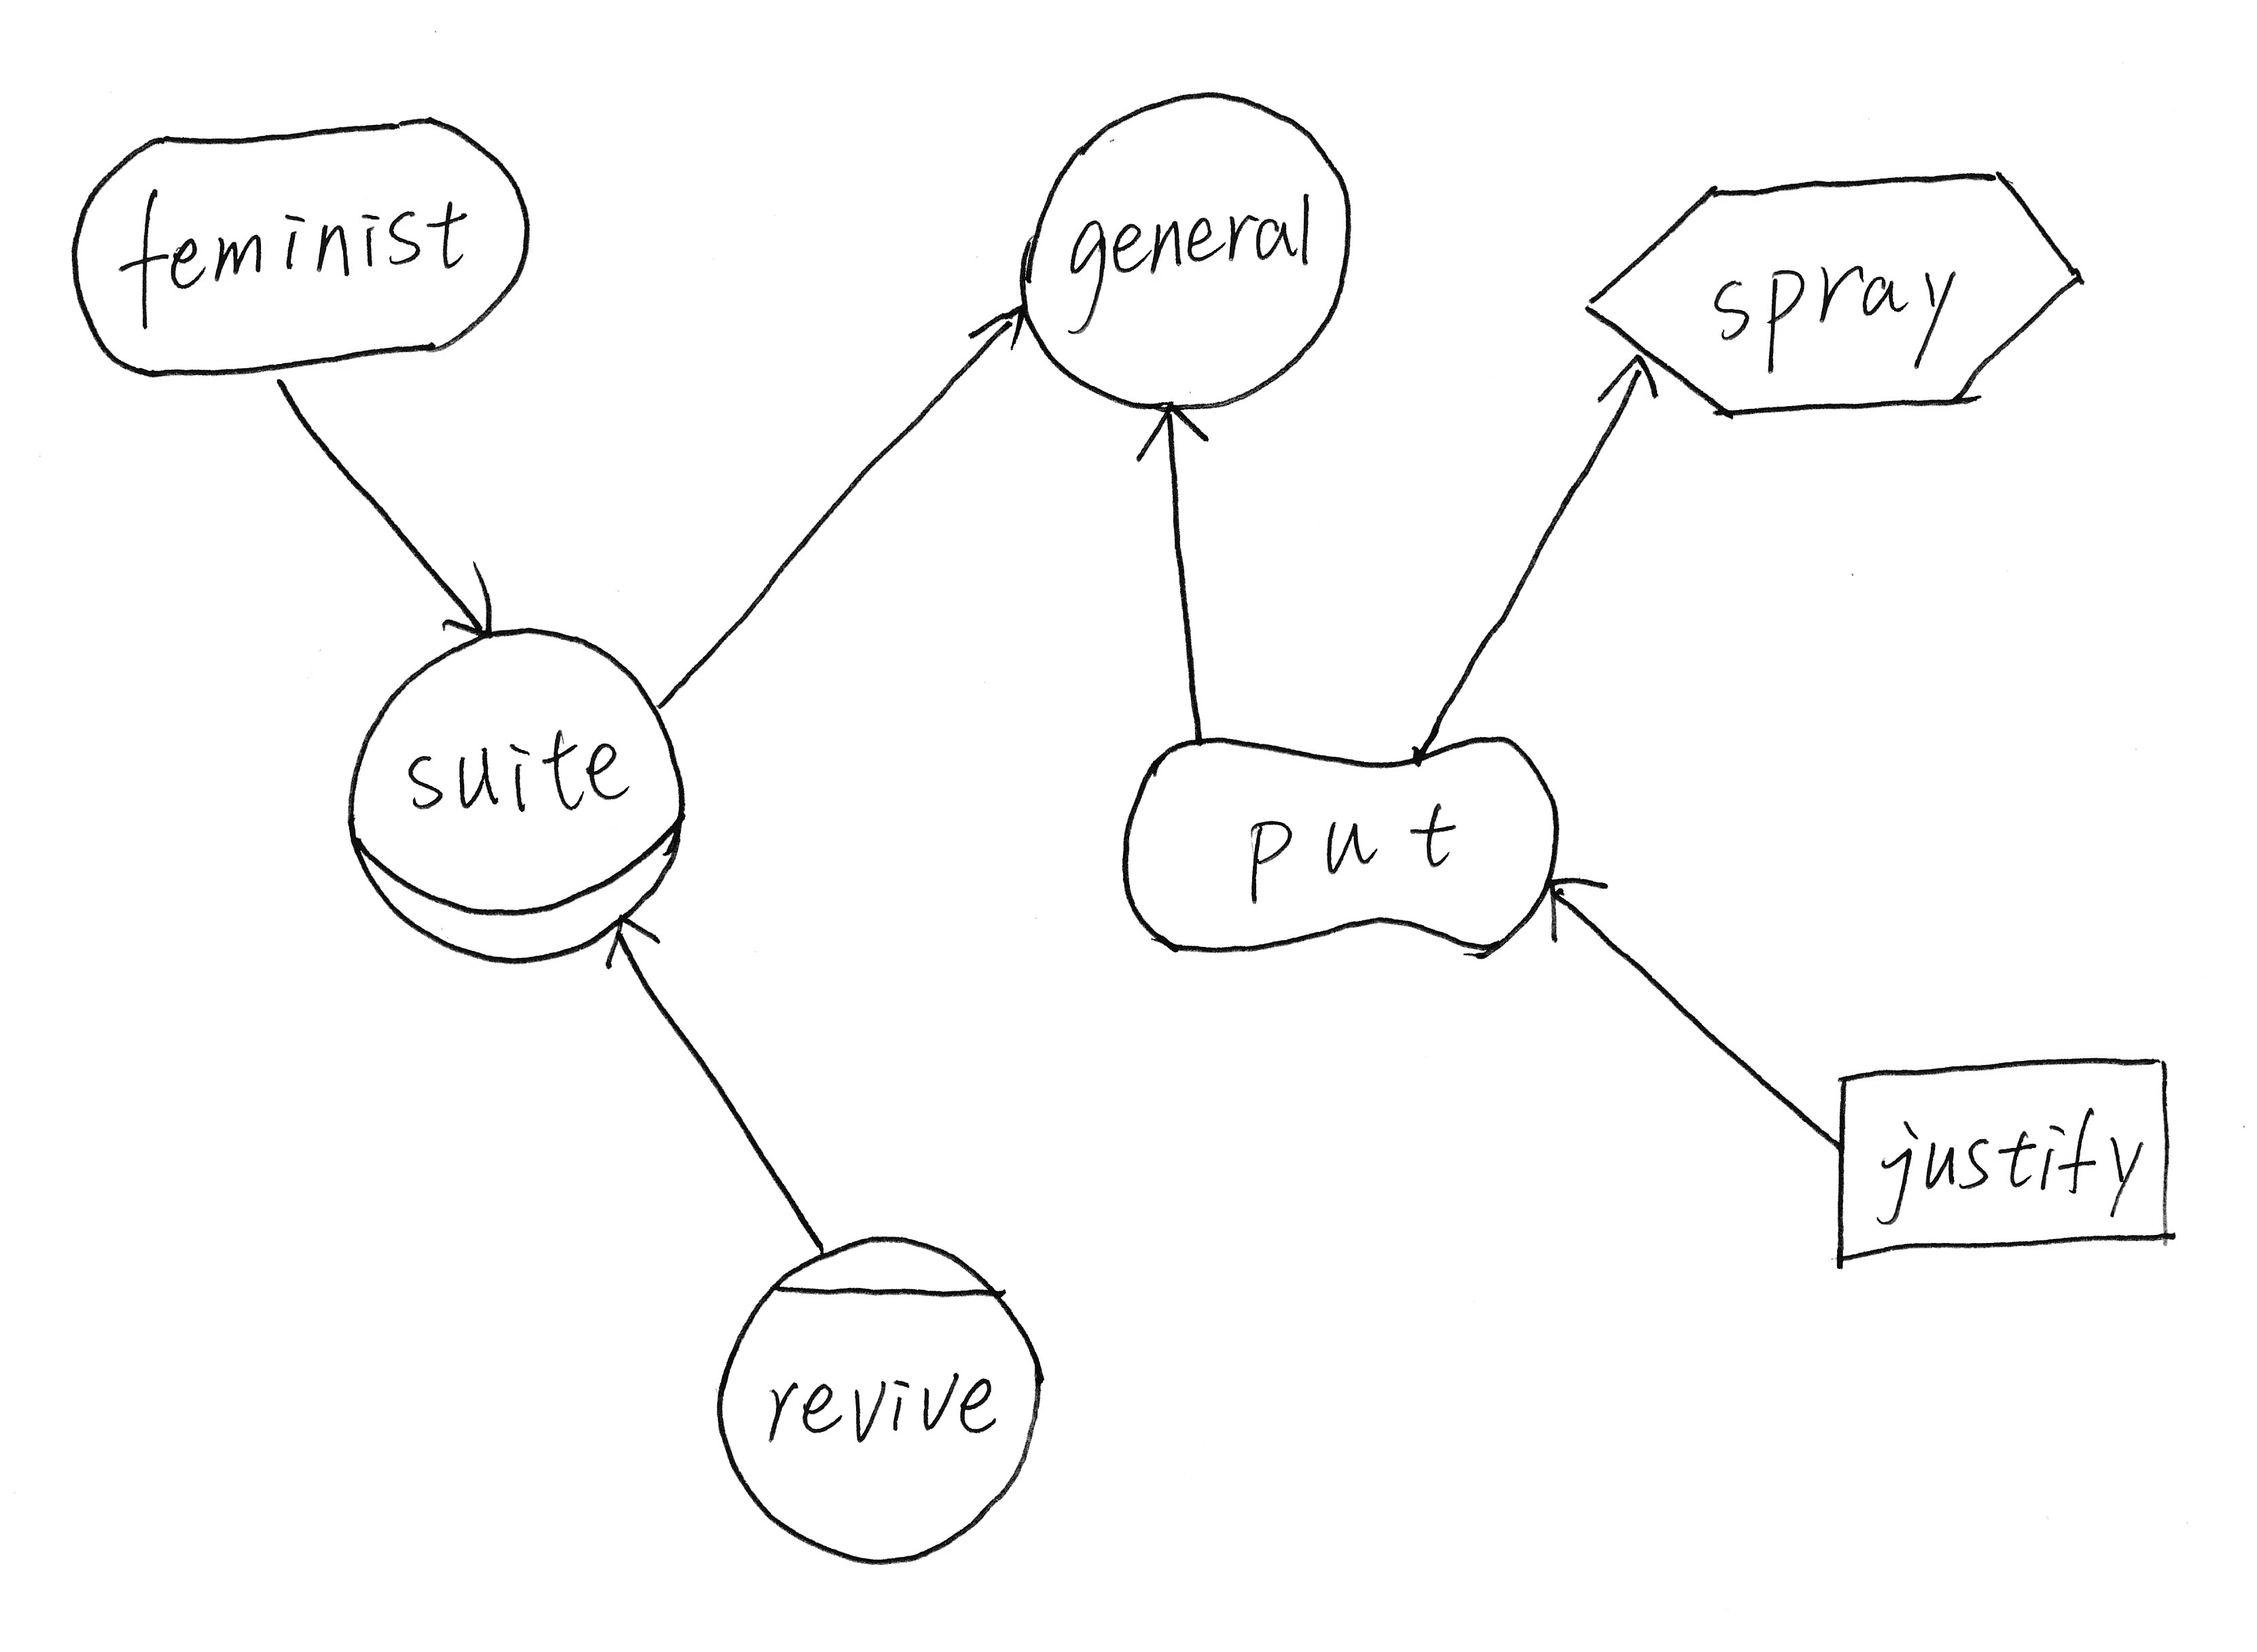 feminist
general
spray
suite
put
justify
revive